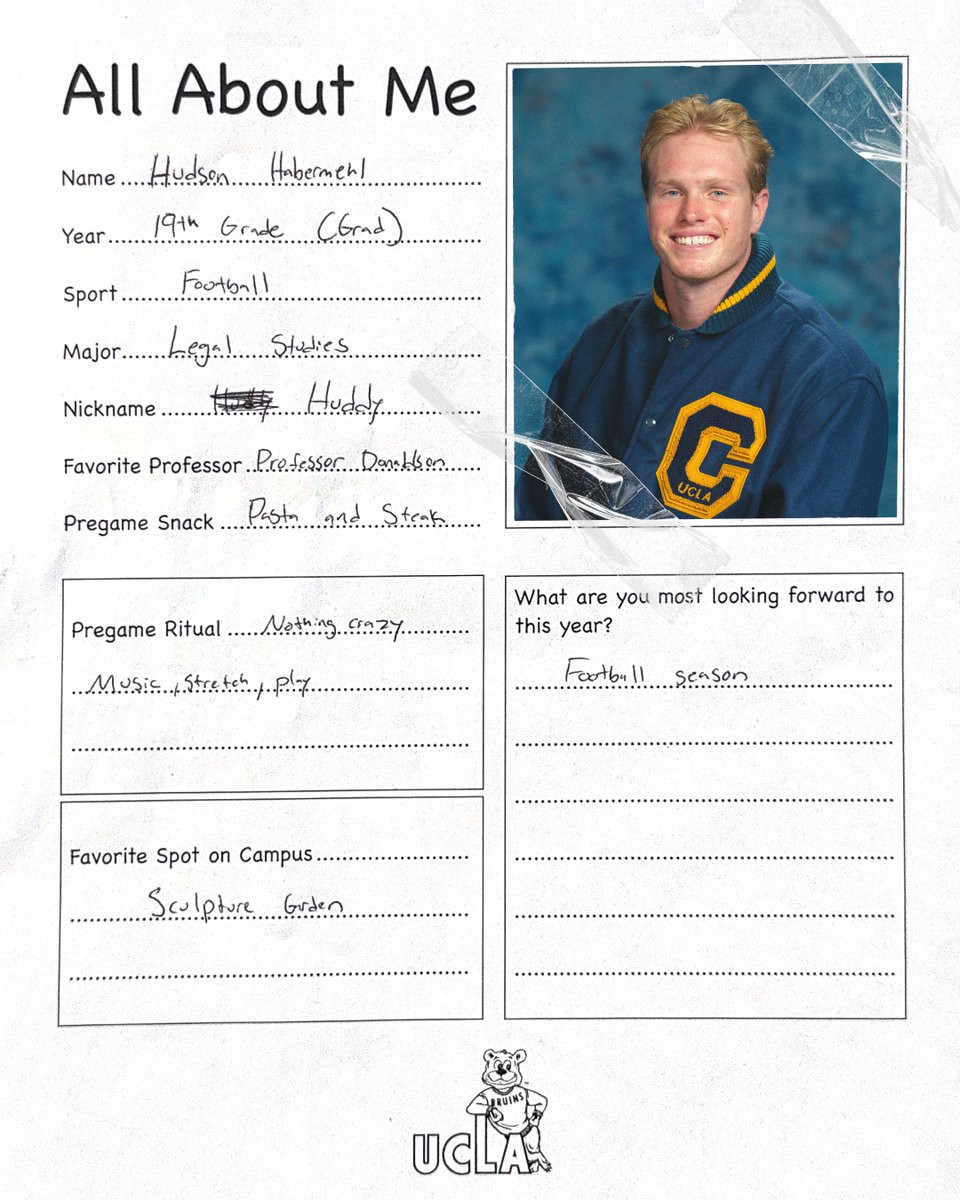 All About Me
Name Hudson Habermehl
Year 19th Grade (Grad)
Sport Football
Major Legal Studies
Nickname Huddy
Favorite Professor Professor Donaldson
Pregame Snack Pasta and Steak
C
UCLA
Pregame Ritual Nothing crazy
Music, stretch, play
Favorite Spot on Campus
Sculpture Garden
What are you most looking forward to
this year?
Football season
BRUINS
UCLA